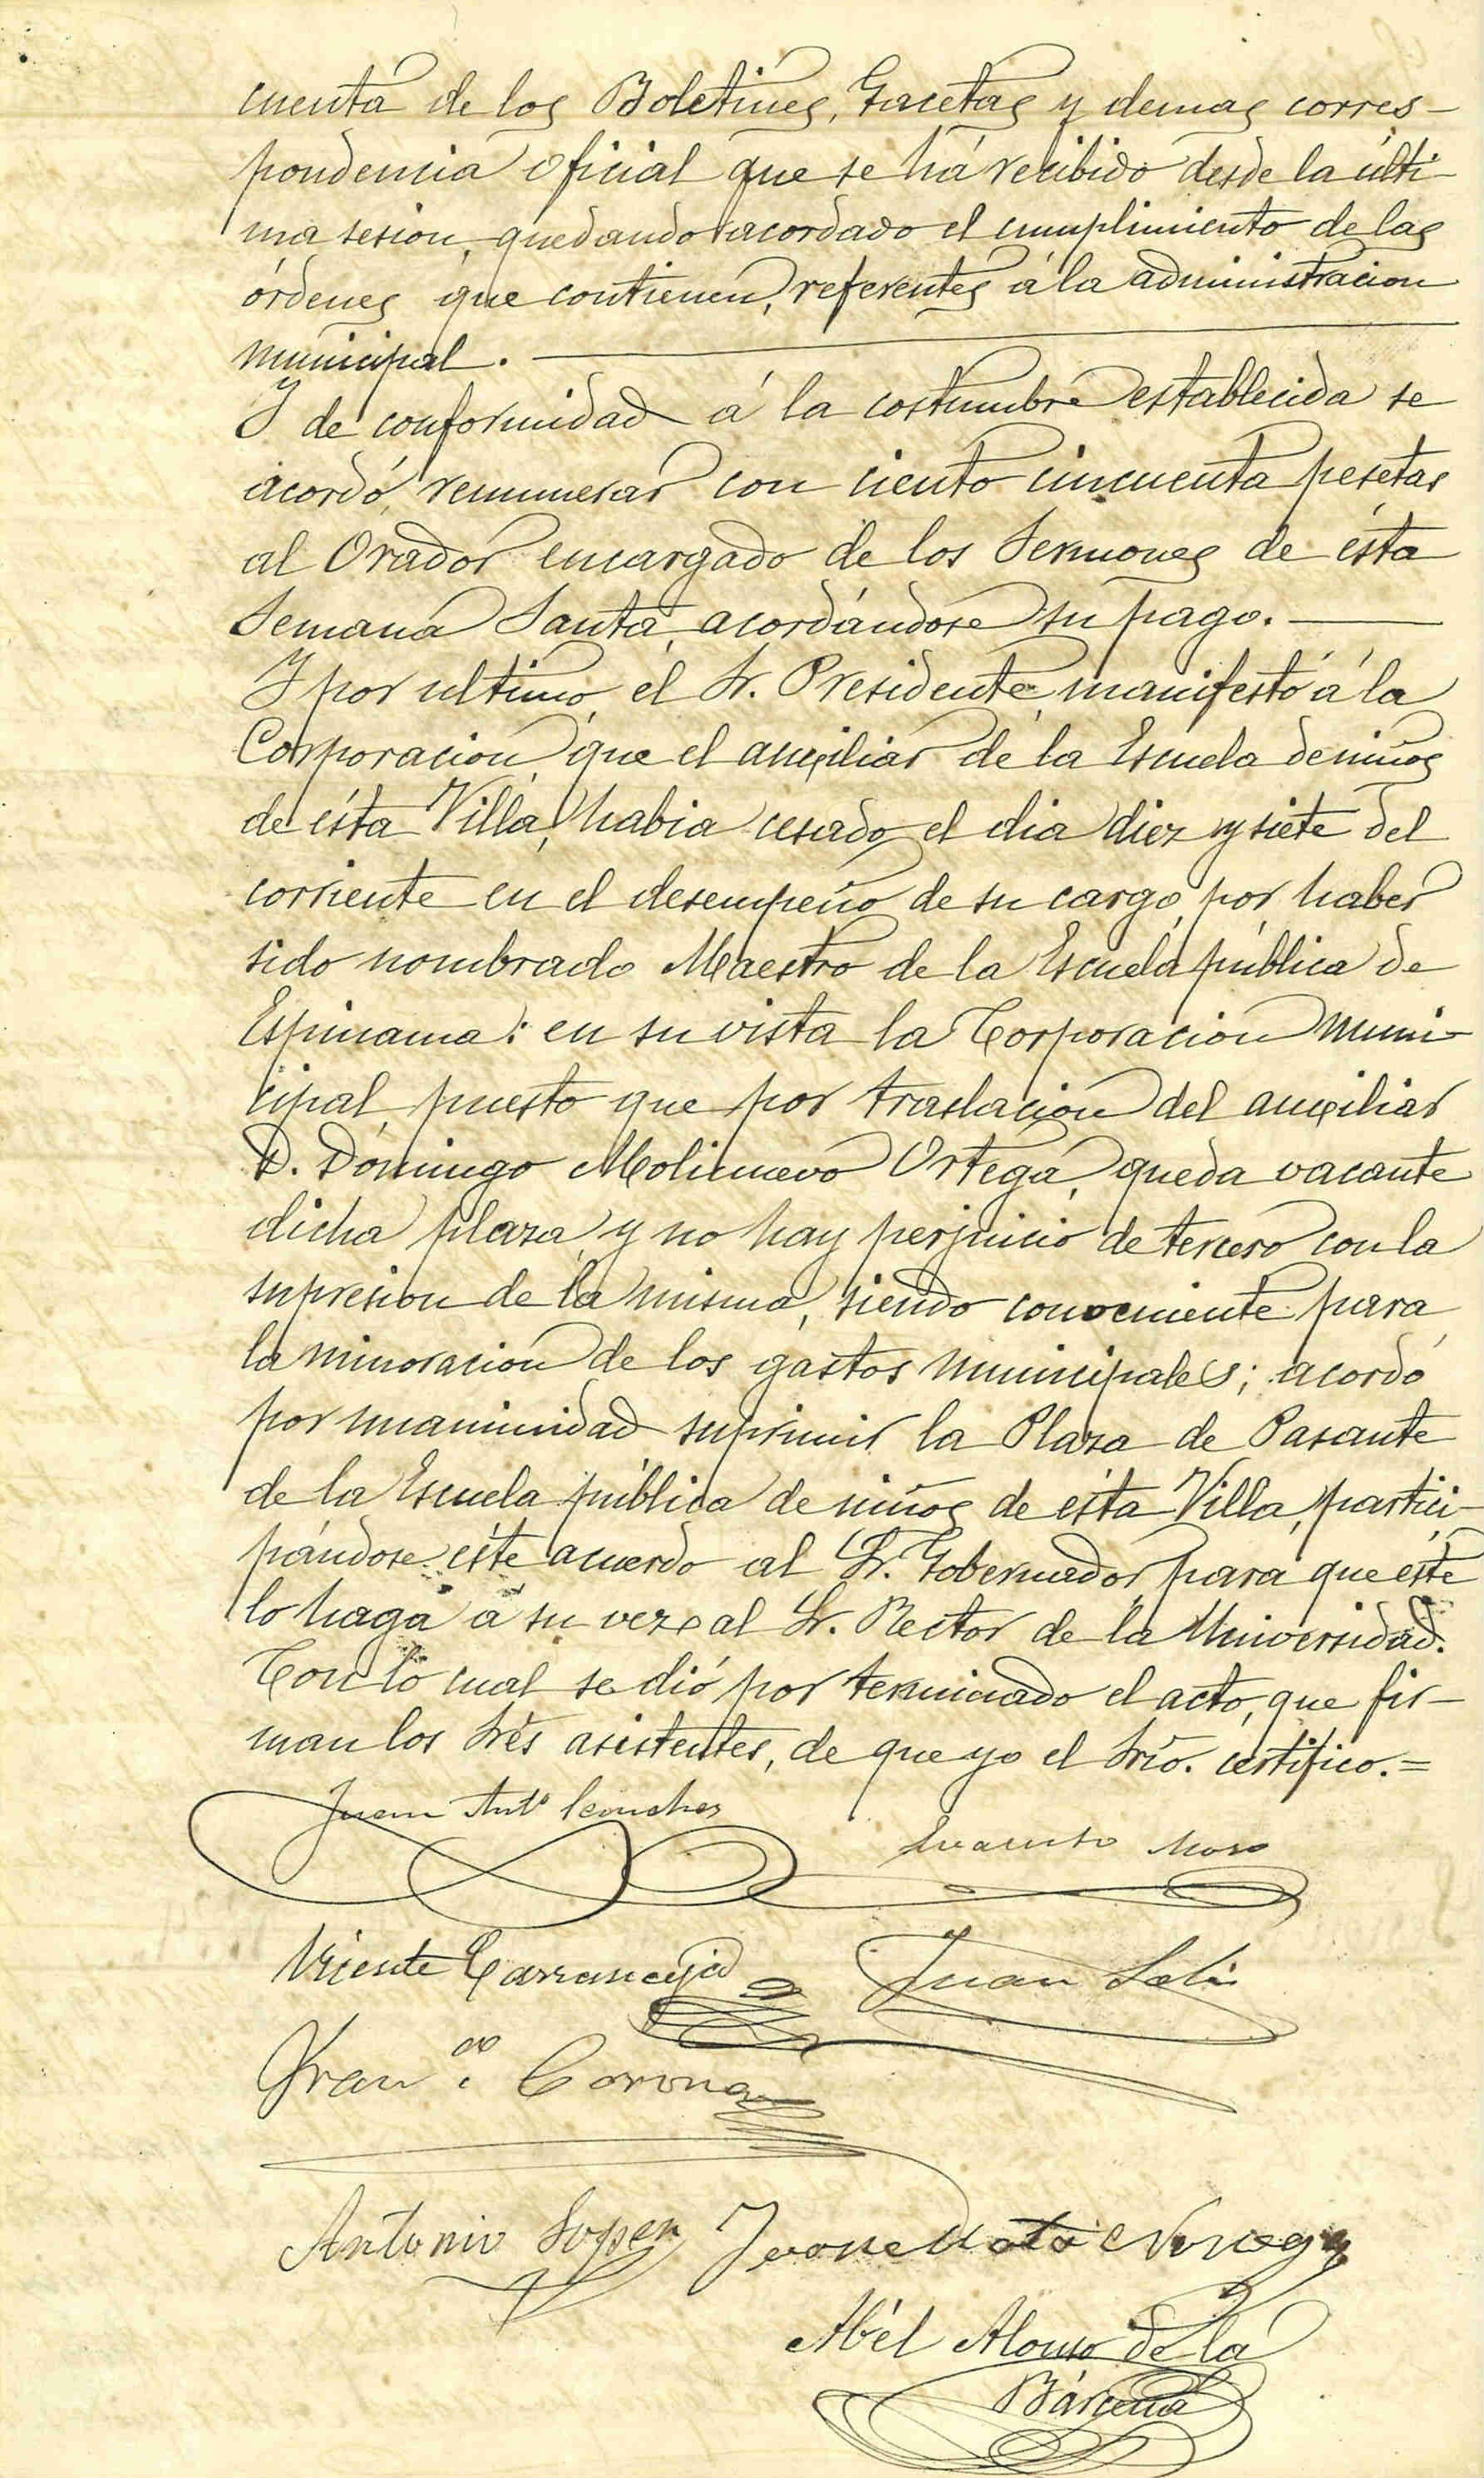 cuenta de los Boletines, Gacetas y demas corres-
pondencia oficial que se há recibido desde la últi-
ma sesion, quedando acordado el cumplimiento de las
órdenes que contienen, referentes á la administracion
municipal.
Y de conformidad á la costumbre establecida se
acordó, remunerar con ciento cincuenta pesetas
al Orador encargado de los Sermones de ésta
Semana Santa, acordándose su pago.
Y por ultimo, el Sr. Presidente, manifestó á la
Corporacion, que el auxiliar de la Escuela de niños
de ésta Villa, habia cesado el dia diez y siete del
corriente en el desempeño de su cargo, por haber
sido nombrado Maestro de la Escuela pública de
Espinama: en su vista la Corporacion muni-
cipal, puesto que por traslacion del auxiliar
D. Domingo Molinuevo Ortega, queda vacante
dicha plaza, y no hay perjuicio de tercero con la
supresion de la misma, siendo conveniente para
la minoracion de los gastos municipales; acordó
por unanimidad suprimir la Plaza de Pasante
de la Escuela pública de niños de ésta Villa, partici-
pándose éste acuerdo al Sr. Gobernador para que éste
lo haga á su vez al Sr. Rector de la Universidad.
Con lo cual se dió por terminado el acto, que fir-
man los Sres asistentes, de que yo el Srio. certifico.=
Juan Antº
Vicente
Juan
Franco. Corona
Antonio Lopez
Noriega
Abél Alonso de la
Bárcena